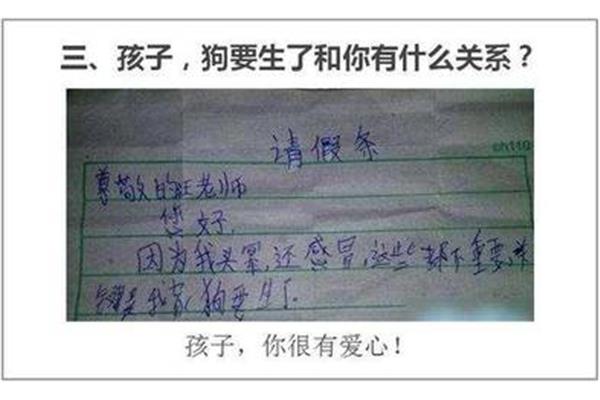 三、孩子，狗要生了和你有什么关系？
ch110
请假条
尊敬的旺老师
您好
因为我头晕,还感冒,这些都不重要,关
键是我家狗要生了
孩子，你很有爱心！